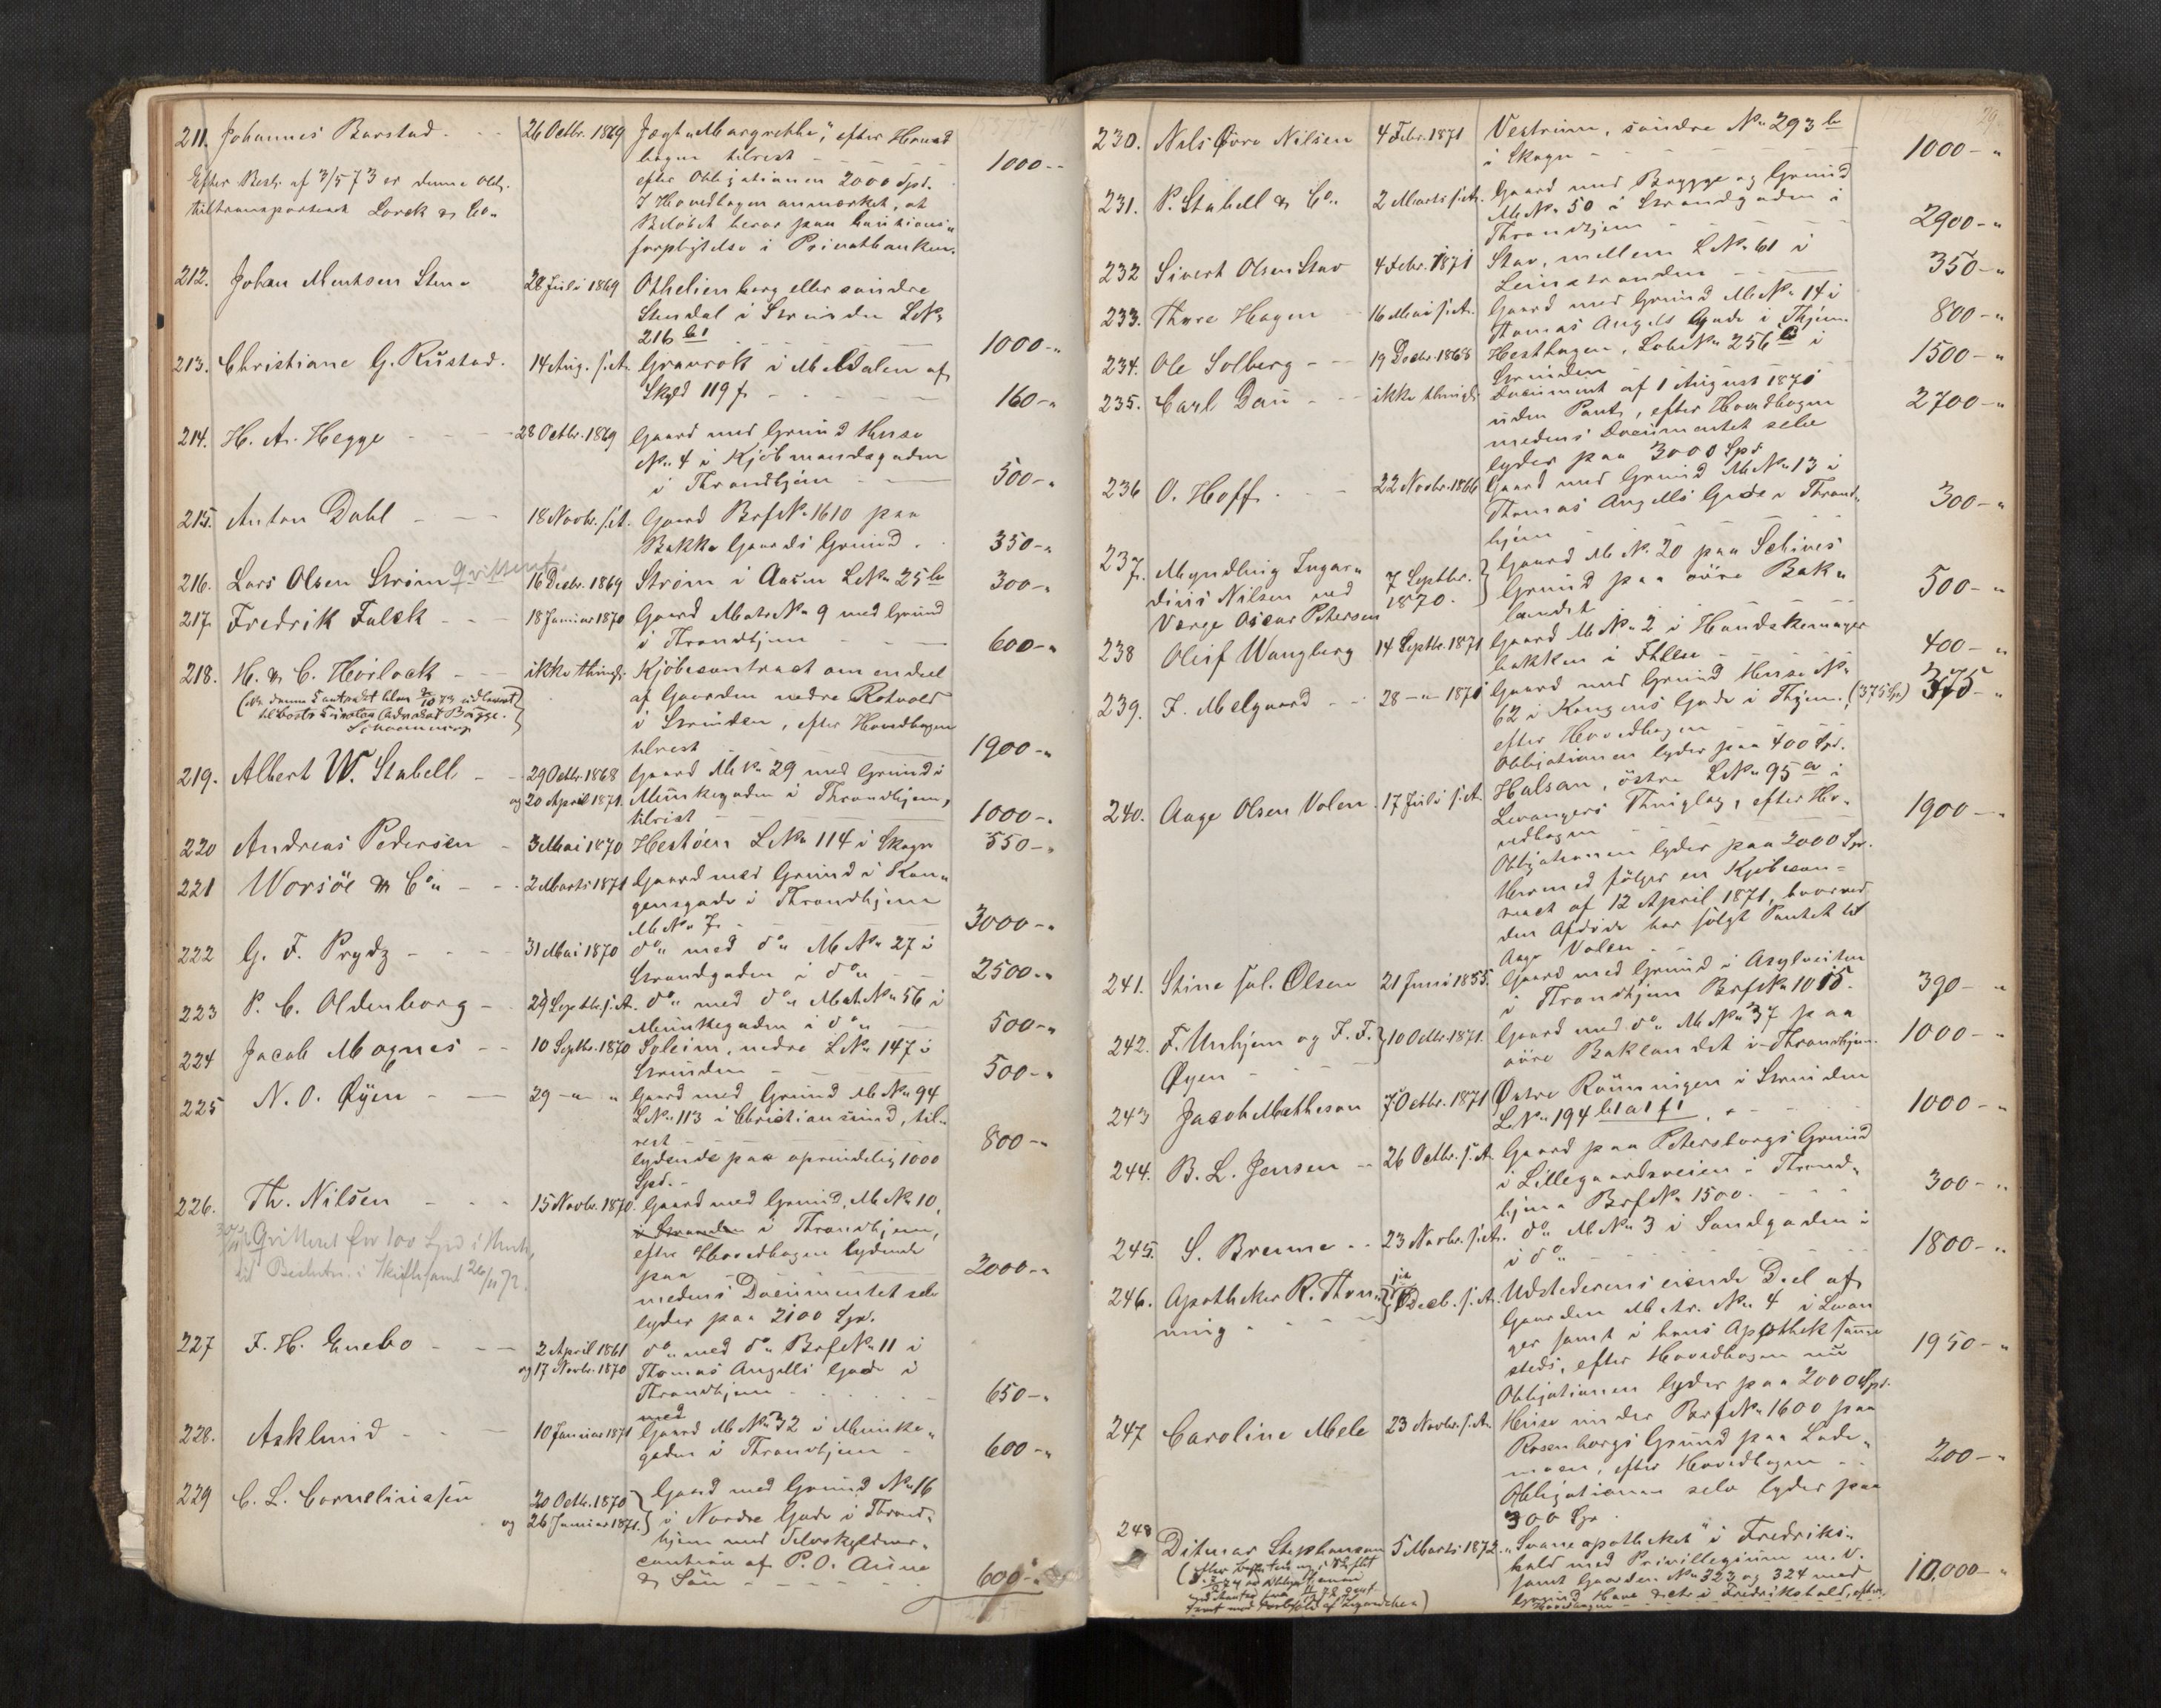 211. Johannes Barstad - - 26 Octbr. 1869 Jagt "Margrethe", efter Hoved
bogen tilrest - - - 1000 - "
Efter Beslt. af 3/5 73 er denne Obl. efter Obligationen 2000 Spd.
tiltransporteret Lorck & Co. I Hovedbogen anmærket, at
Beløbet herer paa Cautions
forpligtelse i Privatbanken.
212. Johan Mentsen Sten 28 Juli 1869 Othelienborg eller søndre
Stendal i Strinden L.No.
216 b1 - - 1000 - "
213. Christiane G. Rustad. 14 Aug. s.A. Gravrok i Meldalen af
Skyld 119 f - - 160 - "
214. H. A. Hegge - - 28 Octbr. 1869 Gaard med Grund Huse
No. 4 i Kjøbmandsgaden
i Throndhjem - - 500 - "
215. Anton Dahl - - 18 Novbr. s.A. Gaard Brf No. 1610 paa
Bakke Gaards Grund. 350 - "
216. Lars Olsen Strøm qvitteret. 16 Decbr. 1869 Strøm i Aasen L.No. 25 b 300 - "
217. Fredrik Falck - - 18 Januar 1870 Gaard Matr. No. 9 med Grund
i Throndhjem - - 600 - "
218. H. & C. Horlock - - ikke thingl. Kjøbecontract om endeel
af Gaarden nedre Rotvold
i Strinden, efter Hovedbogen
tilrest - - 1900 - "
219. Albert W. Stabell - - 29 Octbr. 1868 Gaard M.No. 29 med Grund i
og 20 April 1871. Munkegaden i Throndhjem,
tilrest - - 1000 - "
220 Andreas Pedersen - 3 Mai 1870 Hestøen L.No. 114 i Skogn 550 - "
221 Worsöe & Co. - - 2 Marts 1871 Gaard med Grund i Kon-
gensgade i Throndhjem
M.No. 7. - 3000 - "
222 G. F. Prydz - - 31 Mai 1870 do. med do. M.No. 27 i
Strandgaden i do. - - 2500 - "
223 P. C. Oldenborg - 29 Septbr. s.A. do. med do. Mat.No. 56 i
Munkegaden i do. - 500 - "
224 Jacob Mognes - - 10 Septbr. 1870 Soleim, nedre L.No. 147 i
Strinden - - 500 - "
225 N. O. Øyen - - 29 - " - " Gaard med Grund M.No. 94
L.No. 113 i Christiansund, til-
rest - - 800 - "
lydende paa oprindelig 1000
Spd. -
226. Th. Nilsen - - 15 Novbr. 1870. Gaard med Grund, M.No. 10,
i Throndhjem,
Qvitteret for 100 Spd efter Hovedbogen lydende
paa - - 2000 - "
medens Documentet selv
lyder paa 2100 Spd.
227 F. H. Enebo - - 2 April 1861 do. med do. Brf No. 11 i
og 17 Novbr. 1870 Thomas Angells Gade i
Throndhjem - - 650 - "
228. Asklund - - 10 Januar 1871 Gaard med M.No. 32 i Munke-
gaden i Throndhjem - 600 - "
229 C. L. Corneliussen 20 Octb. 1870 Gaard med Grund No. 16
og 26 Januar 1871. i Nordre Gade i Thrond-
hjem med Selvskyldner-
caution af P. O. Aune
& Søn - - 600 - "
230. Nils Øvre Nilsen 4 Febr. 1871 Vestrum, søndre No. 293 b
i Skogn - - 1000 - "
231. P. Stabell & Co. 2 Marts s.A. Gaard med Brygge og Grund
M.No. 50 i Strandgaden i
Throndhjem - - 2900 - "
232 Sivert Olsen Stav 4 Febr. 1871 Stav, mellem L.No. 61 i
Leinstranden - - 350 - "
233. Thore Hagen 16 Mai s.A. Gaard med Grund M.No. 14 i
Thomas Angels Gade i Thjem. 800 - "
234. Ole Solberg - - 19 Decbr. 1868 Hesthagen, Løbe No. 256 i
Strinden - - 1500 - "
235. Carl Dau - - ikke thingl. Document af 1 August 1870
uden Pant, efter Hovedbogen 2700 - "
medens Documentet selv
lyder paa 3000 Spd.
236 O. Hoff. - - 22 Novbr. 1866 Gaard med Grund M.No. 13 i
Thomas Angells Gade i Thrond-
hjem - - 300 - "
237. Myndling Ingar- 7 Septbr. Gaard M.No. 20 paa Schives
dius Nilsen ved 1870. Grund paa øvre Bak-
Værge Oscar Petersen landet - - 500 - "
238 Oluf Wangberg 14 Septbr. 1871 Gaard M.No. 2 i Handskemager
bakken i Ihlen - 400 - "
239. F. Melgaard - - 28 - " - 1870 Gaard med Grund Huse No.
62 i Kongens Gade i Thjem. (375 Sp.) 375 - "
efter Hovedbogen -
Obligationen lyder paa 400 Spd.
240. Aage Olsen Valen 17 Juli s.A. Halsan, östre L.No. 95 a i
Levangers Thinglag, efter Ho-
vedbogen - - 1900 - "
Obligationen lyder paa 2000 Spd.
Hermed følger en Kjøbecon-
tract af 12 April 1871, hvorved
den Afdøde har solgt Pantet til
Aage Valen -
241. Stine sal. Olsen 21 Juni 1855. Gaard med Grund i Asylveiten
i Throndhjem Brf No. 1015. 390 - "
242. F. Unhjem og F. F. 10 Octbr. 1871. Gaard med do. M.No. 37 paa
Øyen - - øvre Baklandet i Throndhjem. 1000 - "
243 Jacob Matheson 7 Octbr. 1871 Østre Rønningen i Strinden
L.No. 194 b1 a1 f1 - - 1000 - "
244. B. L. Jensen - - 26 Octbr. s.A. Gaard paa Petersborgs Grund
i Lillegaardsveien i Thrond-
hjem Brf No. 1500. - - 300 - "
245. S. Brenne - - 23 Novbr. s.A. do. M.No. 3 i Sandgaden i
i do. - - 1800 - "
246. Apotheker R. Thon- Decb. s.A. Udstederens eiende Deel af
ning - - Gaarden Matr. No. 4 i Levan
ger samt i hans Apothek samme
steds, efter Hovedbogen nu 1950 - "
Obligationen lyder paa 2000 Spd.
247 Caroline Mele 23 Novbr. s.A. Huse under Brf No. 1600 paa
Rosenborgs Grund paa Lade-
moen, efter Hovedbogen - - 200 - "
Obligationen selv lyder paa
300 Spd.
248 Ditmar Stephansen 5 Marts 1872. "Svaneapotheket" i Fredriks-
hald med Privillegium m. V.
samt Gaarden No. 323 og 324 med 10,000 - "
Grund Have i Fredrikshald, efter
Hovedbogen